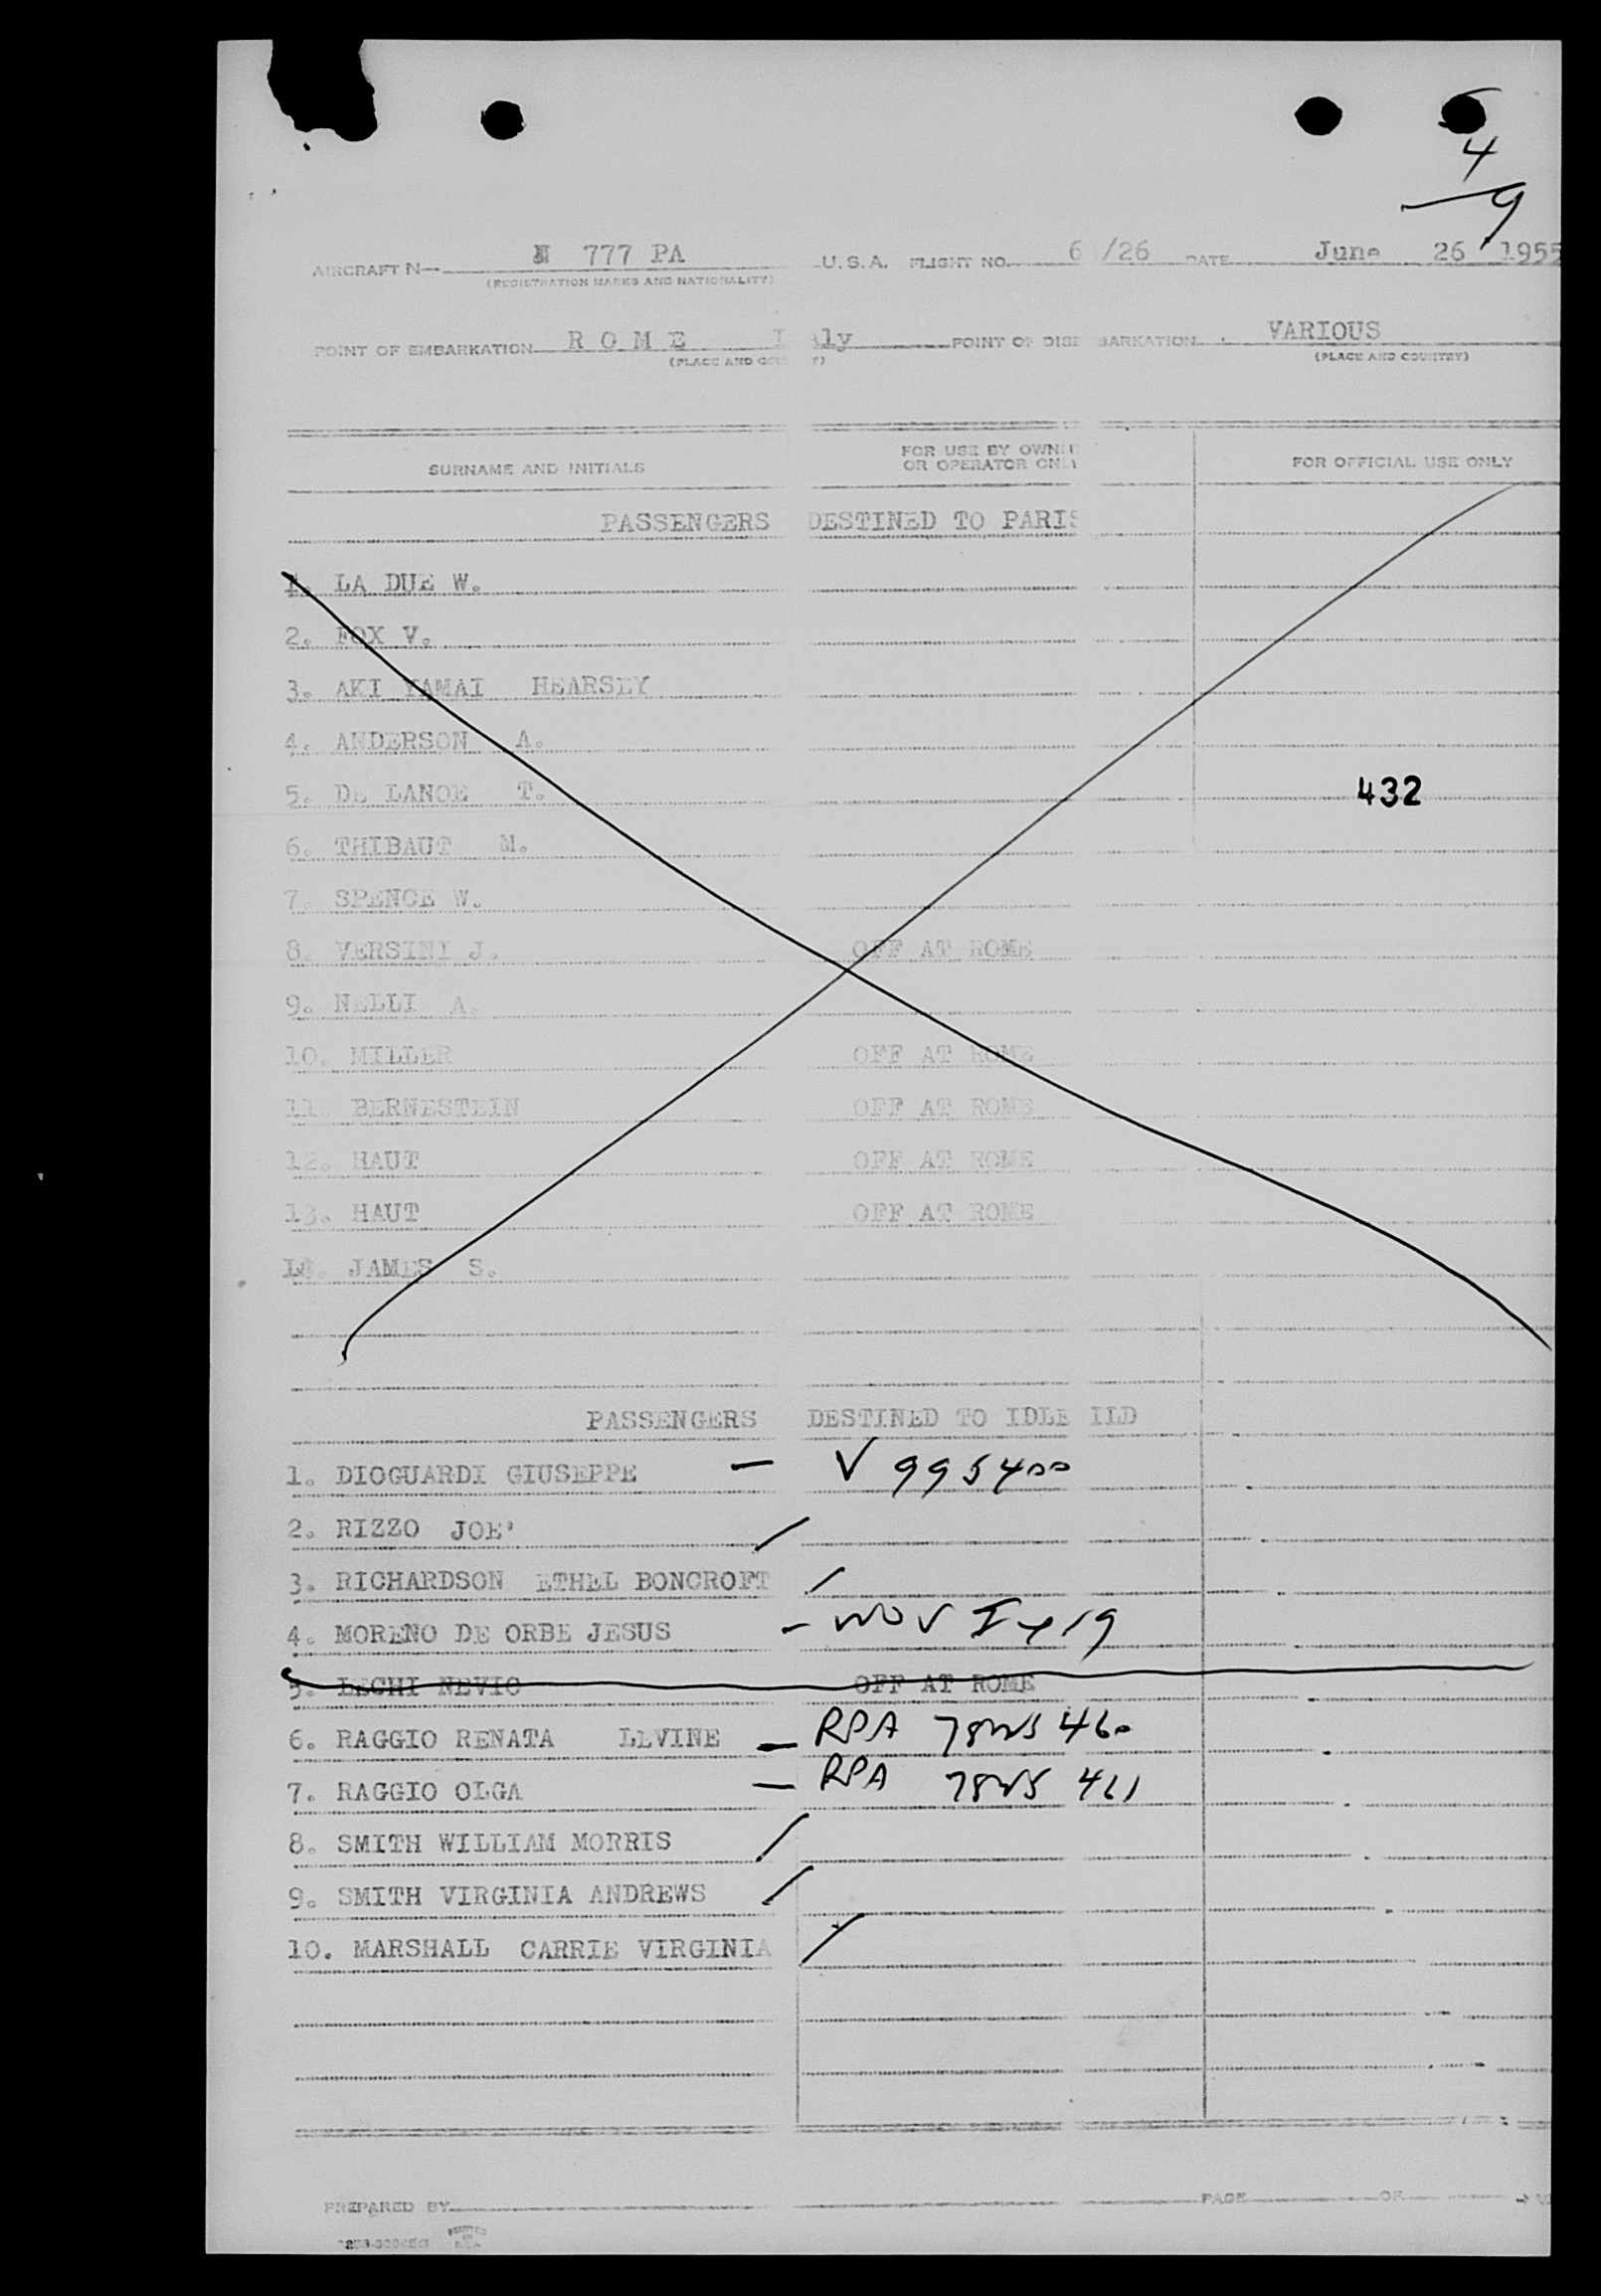 4
9
AIRCRAFT N— N 777 PA U.S.A. FLIGHT NO. 6 /26 DATE June 26 1955
(REGISTRATION MARKS AND NATIONALITY)
POINT OF EMBARKATION R O M E I aly POINT OF DISE BARKATION VARIOUS
(PLACE AND COU T) (PLACE AND COUNTRY)
SURNAME AND INITIALS FOR USE BY OWNE OR OPERATOR ONLY FOR OFFICIAL USE ONLY
PASSENGERS DESTINED TO PARIS
1. LA DUE W.
2. FOX V.
3. AKI YAMAI HEARSEY
4. ANDERSON A.
5. DE LANOE T.
432
6. THIBAUT M.
7. SPENCE W.
8. VERSINI J. OFF AT ROME
9. NELLI A.
10. MILLER OFF AT ROME
11. BERNESTEIN OFF AT ROME
12. HAUT OFF AT ROME
13. HAUT OFF AT ROME
14. JAMES S.
PASSENGERS DESTINED TO IDLE ILD
1. DIOGUARDI GIUSEPPE — V 995400
2. RIZZO JOE'
3. RICHARDSON ETHEL BONCROFT
4. MORENO DE ORBE JESUS —
5. LECHI NEVIO OFF AT ROME
6. RAGGIO RENATA LEVINE — RPA 460
7. RAGGIO OLGA — RPA 461
8. SMITH WILLIAM MORRIS
9. SMITH VIRGINIA ANDREWS
10. MARSHALL CARRIE VIRGINIA
PREPARED BY PAGE OF